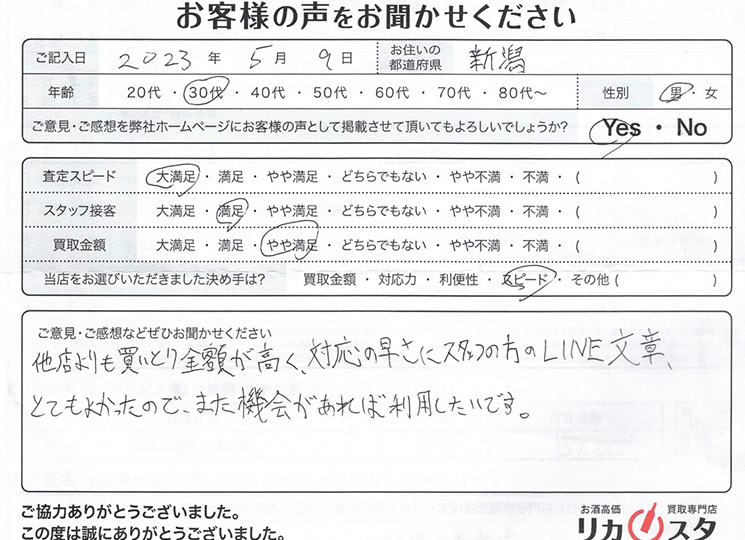 お客様の声をお聞かせください
ご記入日 2023 年 5 月 9 日 お住いの都道府県 新潟
年齢 20代 ・ 30代 ・ 40代 ・ 50代 ・ 60代 ・ 70代 ・ 80代〜 性別 男 ・ 女
ご意見・ご感想を弊社ホームページにお客様の声として掲載させて頂いてもよろしいでしょうか? Yes ・ No
査定スピード 大満足 ・ 満足 ・ やや満足 ・ どちらでもない ・ やや不満 ・ 不満 ・ ( )
スタッフ接客 大満足 ・ 満足 ・ やや満足 ・ どちらでもない ・ やや不満 ・ 不満 ・ ( )
買取金額 大満足 ・ 満足 ・ やや満足 ・ どちらでもない ・ やや不満 ・ 不満 ・ ( )
当店をお選びいただきました決め手は? 買取金額 ・ 対応力 ・ 利便性 ・ スピード ・ その他 ( )
ご意見・ご感想などぜひお聞かせください
他店よりも買いとり金額が高く、対応の早さにスタッフの方のLINE文章、
とてもよかったので、また機会があれば利用したいです。
ご協力ありがとうございました。
この度は誠にありがとうございます。
お酒高価 買取専門店
リカスタ